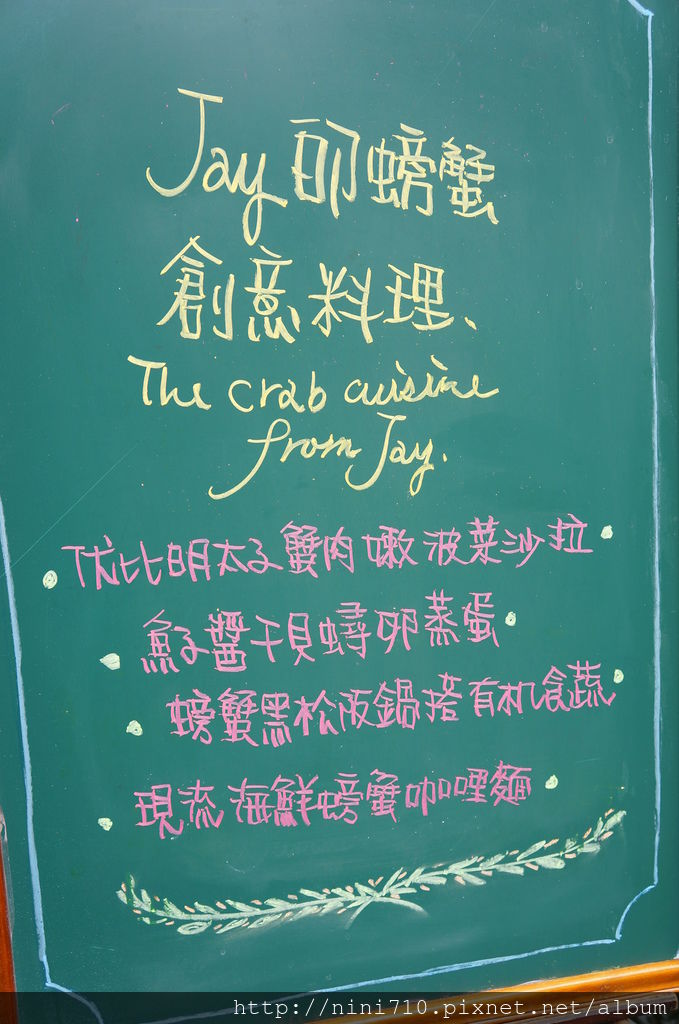 Jay的螃蟹
創意料理、
The crab cuisine
from Jay.
优比明太子蟹肉嫩菠菜沙拉
魚子醬干貝蟳卵蒸蛋
螃蟹黑松阪鍋搭有机食蔬
現流海鮮螃蟹咖哩麵
http://nini710.pixnet.net/album